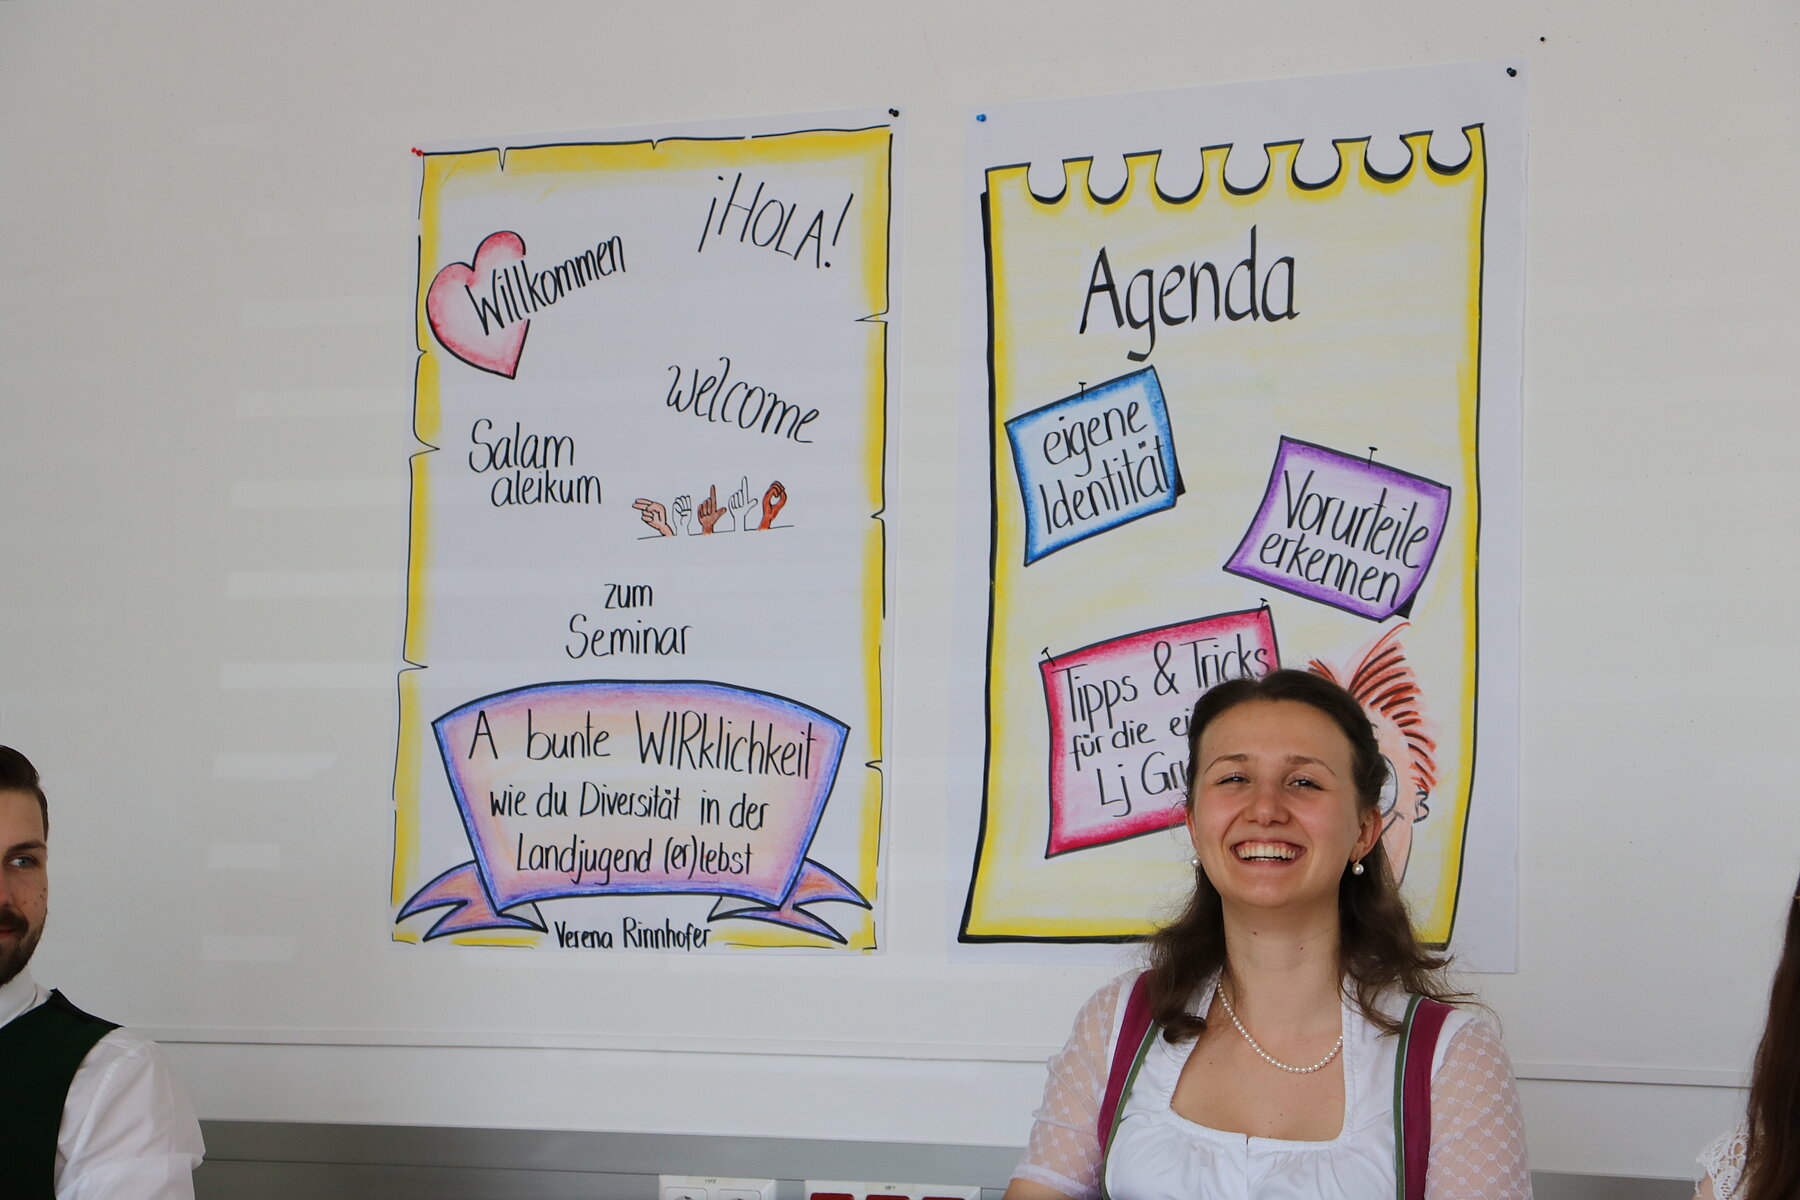 ¡HOLA!
Willkommen
welcome
Salam
aleikum
zum
Seminar
A bunte WIRklichkeit
wie du Diversität in der
Landjugend (er)lebst
Verena Rinnhofer
Agenda
eigene
Identität
Vorurteile
erkennen
Tipps & Tricks
für die
Lj